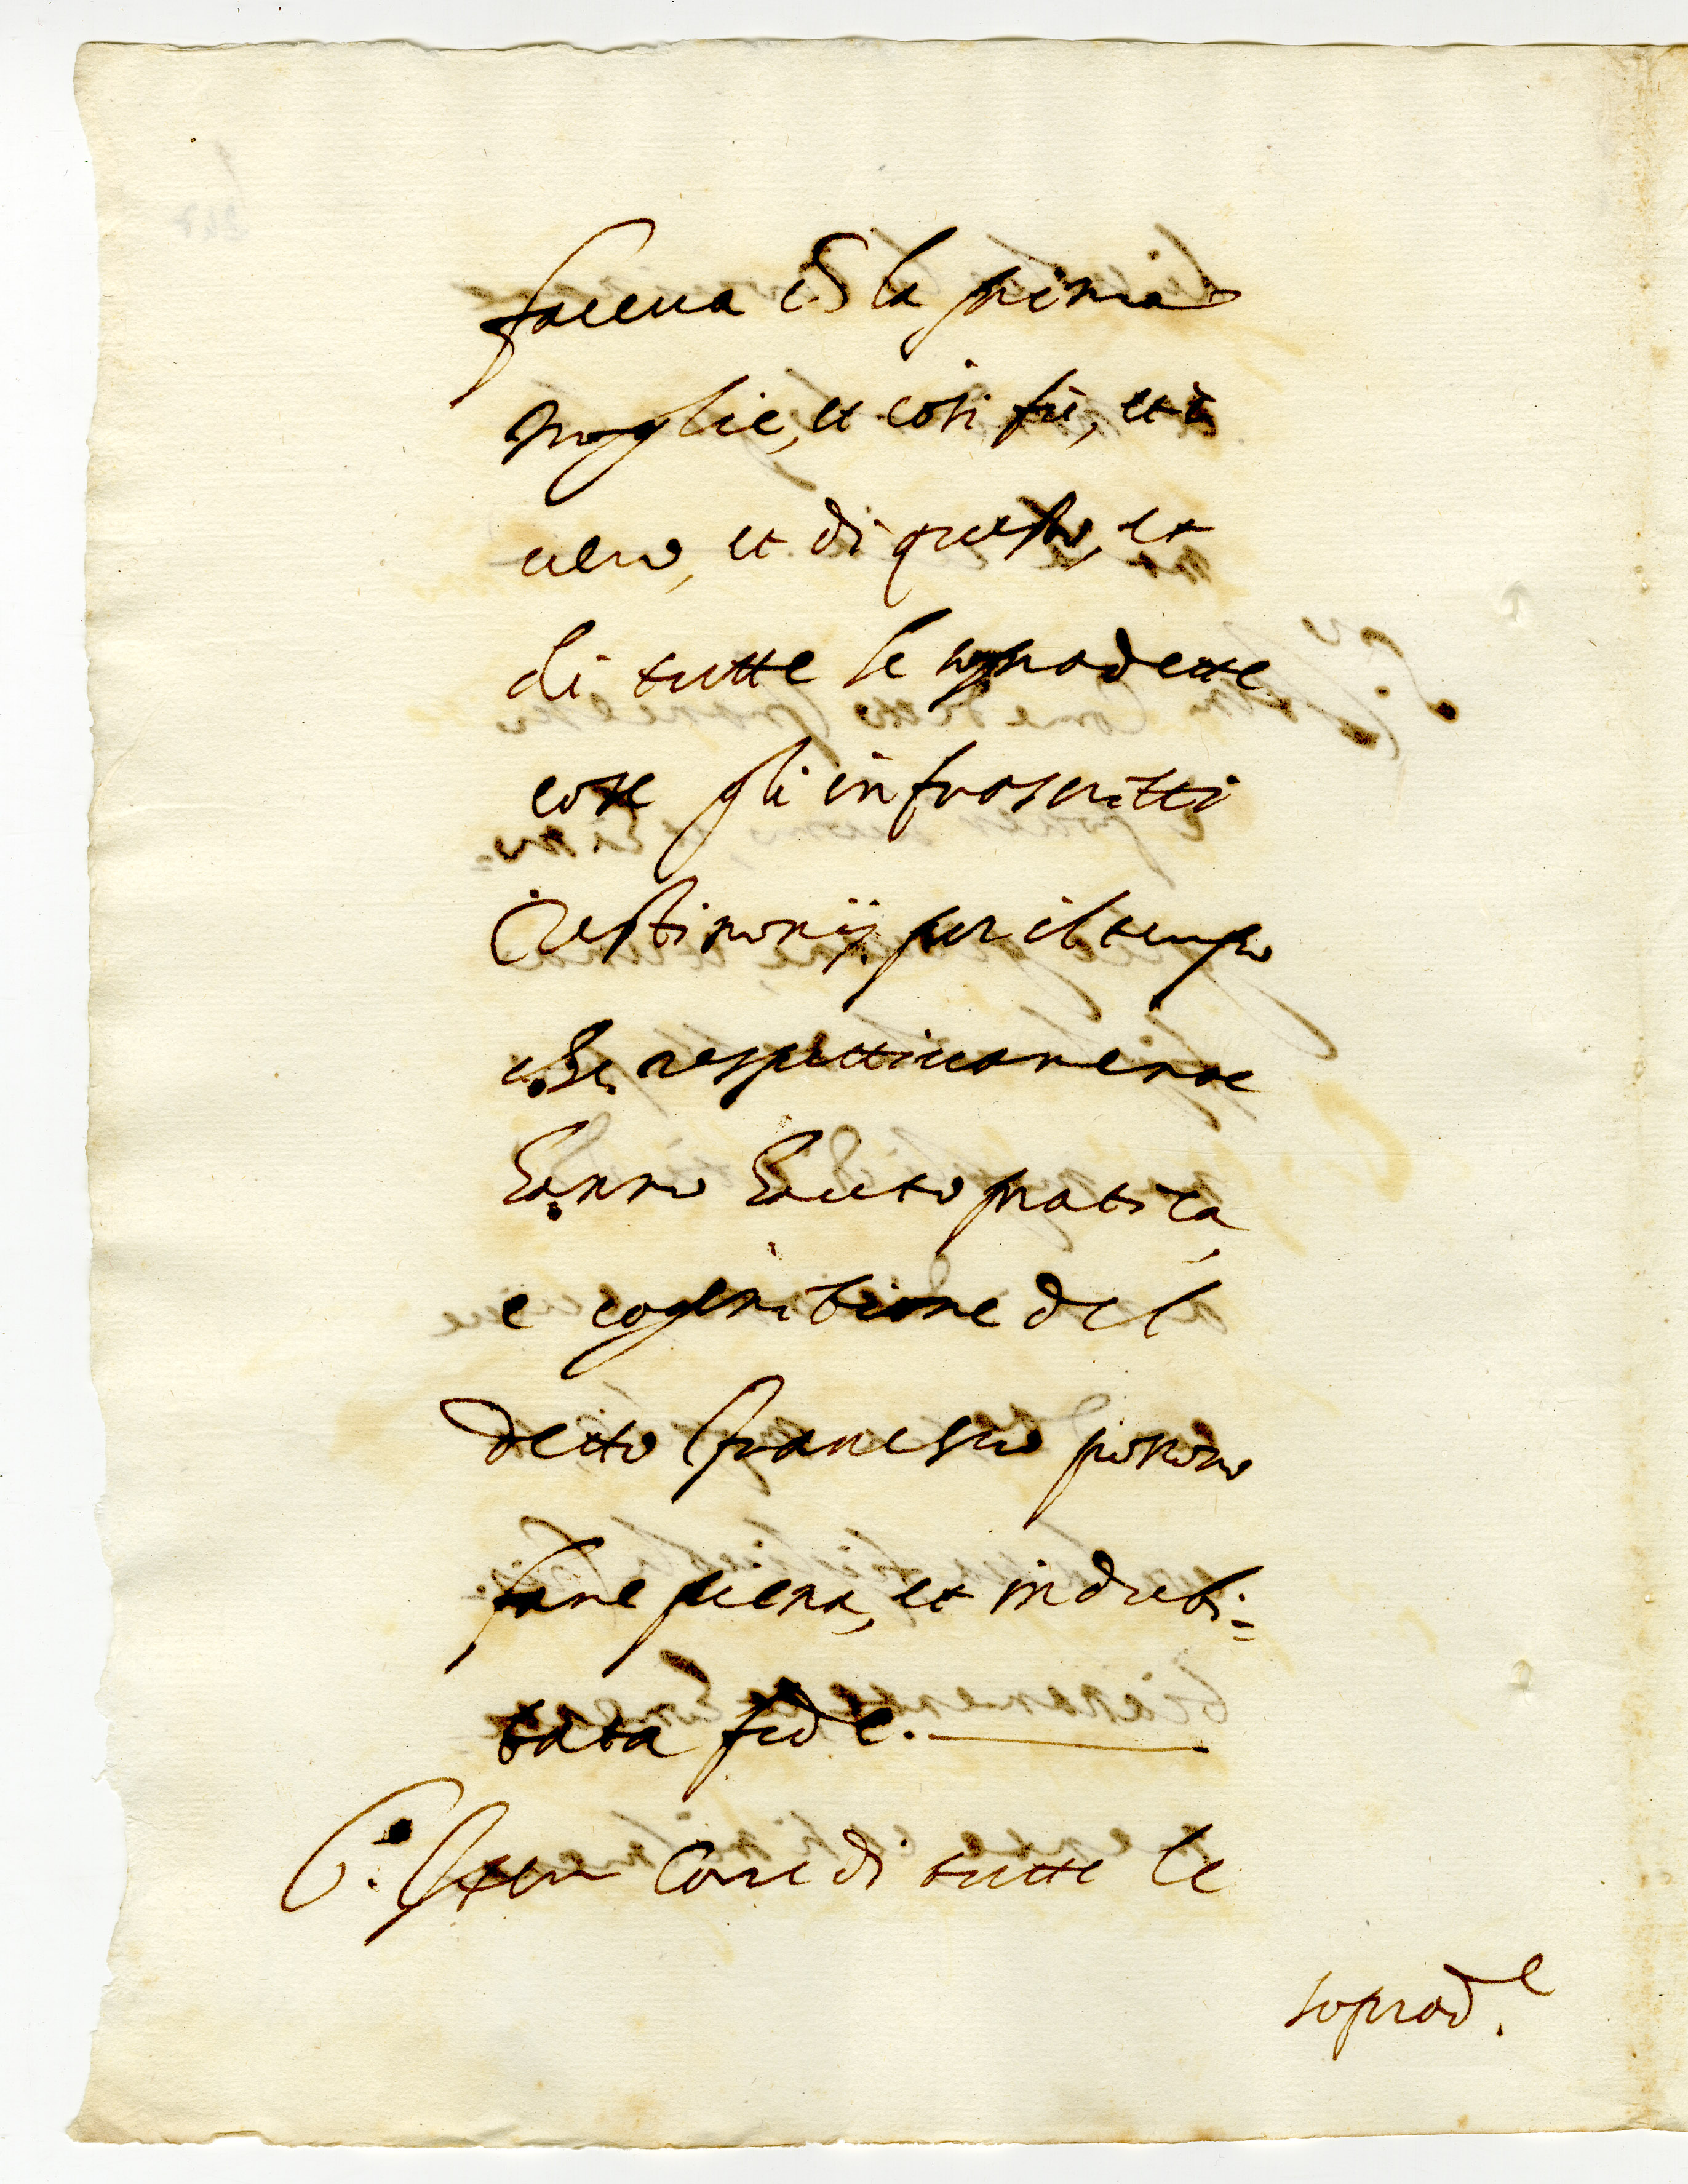 faceua cõ la prima
moglie, et cosi fù, et è
uero, et di questo, et
di tutte le sopradette
cose gli infrascritti
Testimonij per il tempo
che respettiuamente
hanno hauuto pratica,
e cognitione del
detto Francesco possono
fare piena, et indubi=
tata fede.
6. Item Come di tutte le
soprad.e